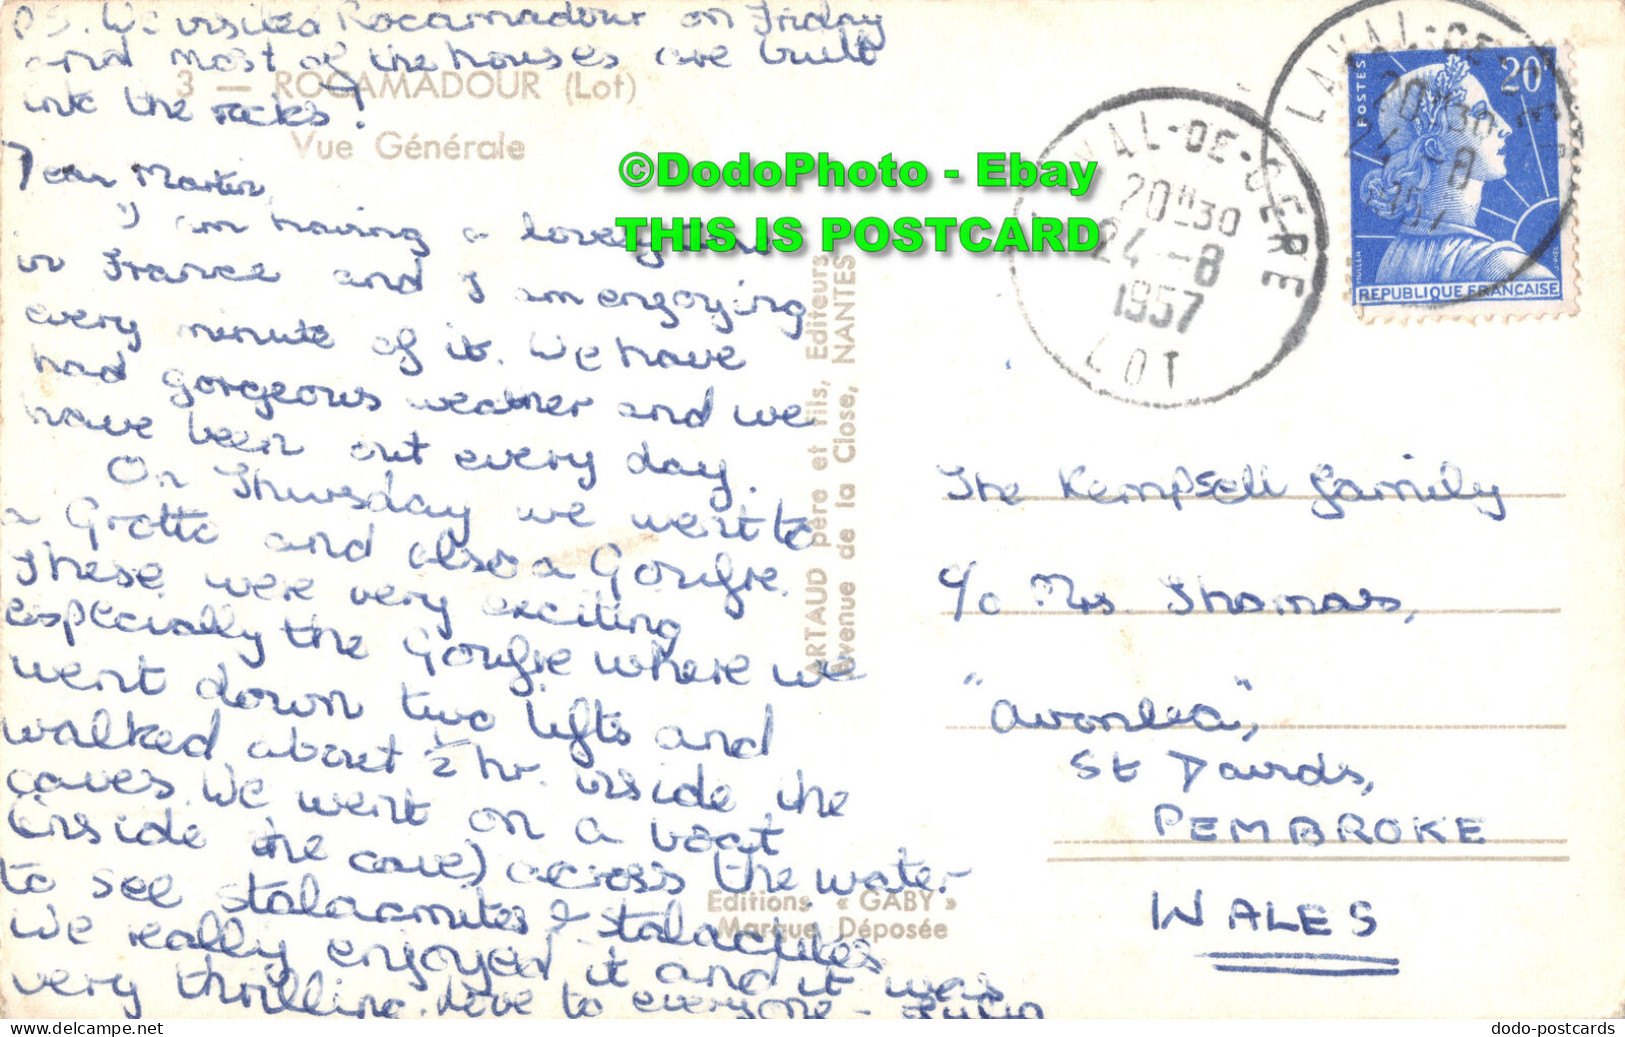 P.S. We visited Rocamadour on Friday
and most of the houses are built
into the rocks!
3 — ROCAMADOUR (Lot)
Vue Générale
Dear Martin,
I am having a lovely
in France and I am enjoying
every minute of it. We have
had gorgeous weather and we
have been out every day.
On Thursday we went to
a Grotto and also a Gouffre.
These were very exciting
especially the Gouffre where we
went down two lifts and
walked about ½ hr. inside the
caves. We went on a boat
(inside the cave) across the water
to see stalacmites & stalactites
We really enjoyed it and it was
very thrilling. Love to everyone -
Editions « GABY »
Marque Déposée
ARTAUD père et fils, Editeurs
Avenue de la Close, NANTES
©DodoPhoto - Ebay
THIS IS POSTCARD
LAVAL-DE-CERE
20H30
24 -8
1957
LOT
LAVAL-DE-CERE
20H30
24 -8
1957
POSTES
20F
MULLER
REPUBLIQUE FRANÇAISE
The Kempsell family
c/o Mrs. Thomas,
"Avonlea",
St Davids,
PEMBROKE
WALES
dodo-postcards's Items - delcampe.net